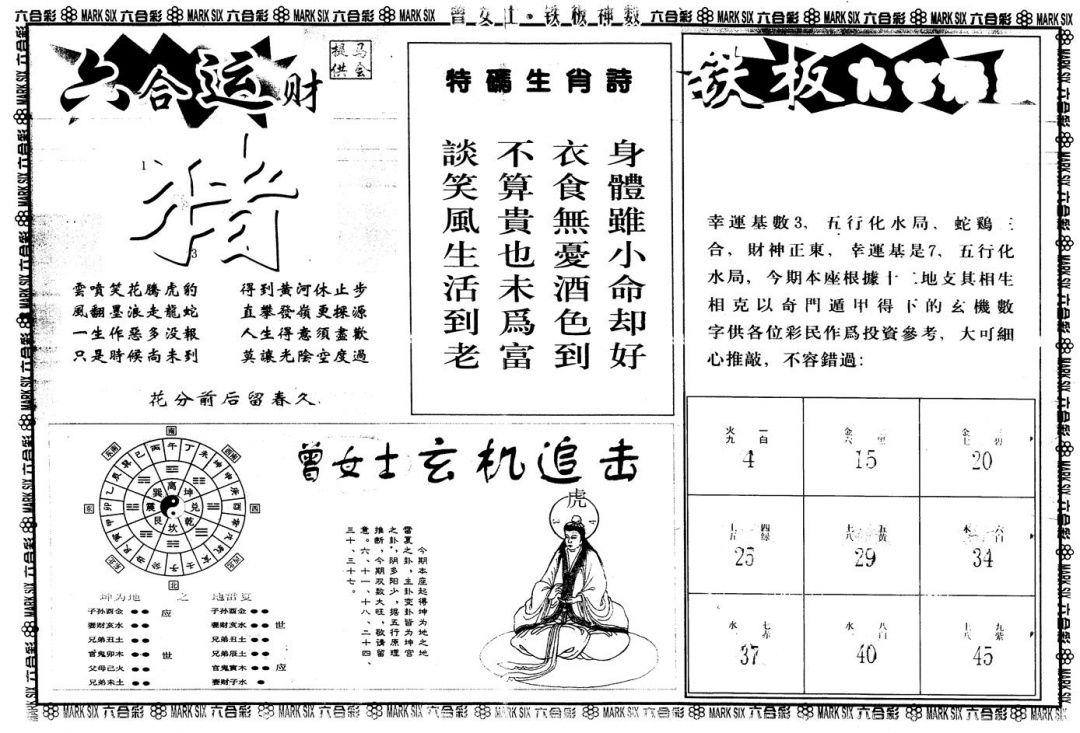 六合彩 MARK SIX 六合彩 MARK SIX 六合彩 MARK SIX 六合彩 MARK SIX 曾女士·铁板神数 六合彩 MARK SIX 六合彩 MARK SIX 六合彩 MARK SIX 六合彩 MARK SIX
六合运财
马会
提供
猪
1
3
雲噴笑花騰虎豹
風翻墨浪走龍蛇
一生作惡多没報
只是時候尚未到
得到黄河休止步
直攀發嶺更探源
人生得意須盡歡
莫讓光陰空度過
花分前后留春久
特碼生肖詩
身體雖小命却好
衣食無憂酒色到
不算貴也未爲富
談笑風生活到老
铁板
幸運基數3，五行化水局，蛇鷄三
合，財神正東，幸運基是7，五行化
水局，今期本座根據十二地支其相生
相克以奇門遁甲得下的玄機數
字供各位彩民作爲投資參考，大可細
心推敲，不容錯過：
火九 一白
4
金六
15
金七 碧
20
四緑
25
五黄
29
六白
34
水 七赤
37
水 八白
40
土八 九紫
45
曾女士玄机追击
虎
3 4
今期本座起得坤为地之地
雷夏之卦，主卦变卦皆为坤宫
之卦，阴多阳少，据五行原理
推断，今期双数大旺，敬请留
意。六、十一、十八、二十四、
三十、三十七。
南
西南
西
西北
北
东北
东
东南
午丁未坤申庚酉辛戌乾亥壬子癸丑艮寅甲卯乙辰巽巳丙
离坤兑乾坎艮震巽
坤为地 之 地雷夏
子孙酉金 应
妻财亥水
兄弟丑土
官鬼卯木 世
父母巳火
兄弟未土
子孙酉金
妻财亥水 世
兄弟丑土
兄弟辰土
官鬼寅木 应
妻财子水
MARK SIX 六合彩 MARK SIX 六合彩 MARK SIX 六合彩 MARK SIX 六合彩 MARK SIX 六合彩 MARK SIX 六合彩 MARK SIX 六合彩 MARK SIX 六合彩 MARK SIX 六合彩 MARK SIX